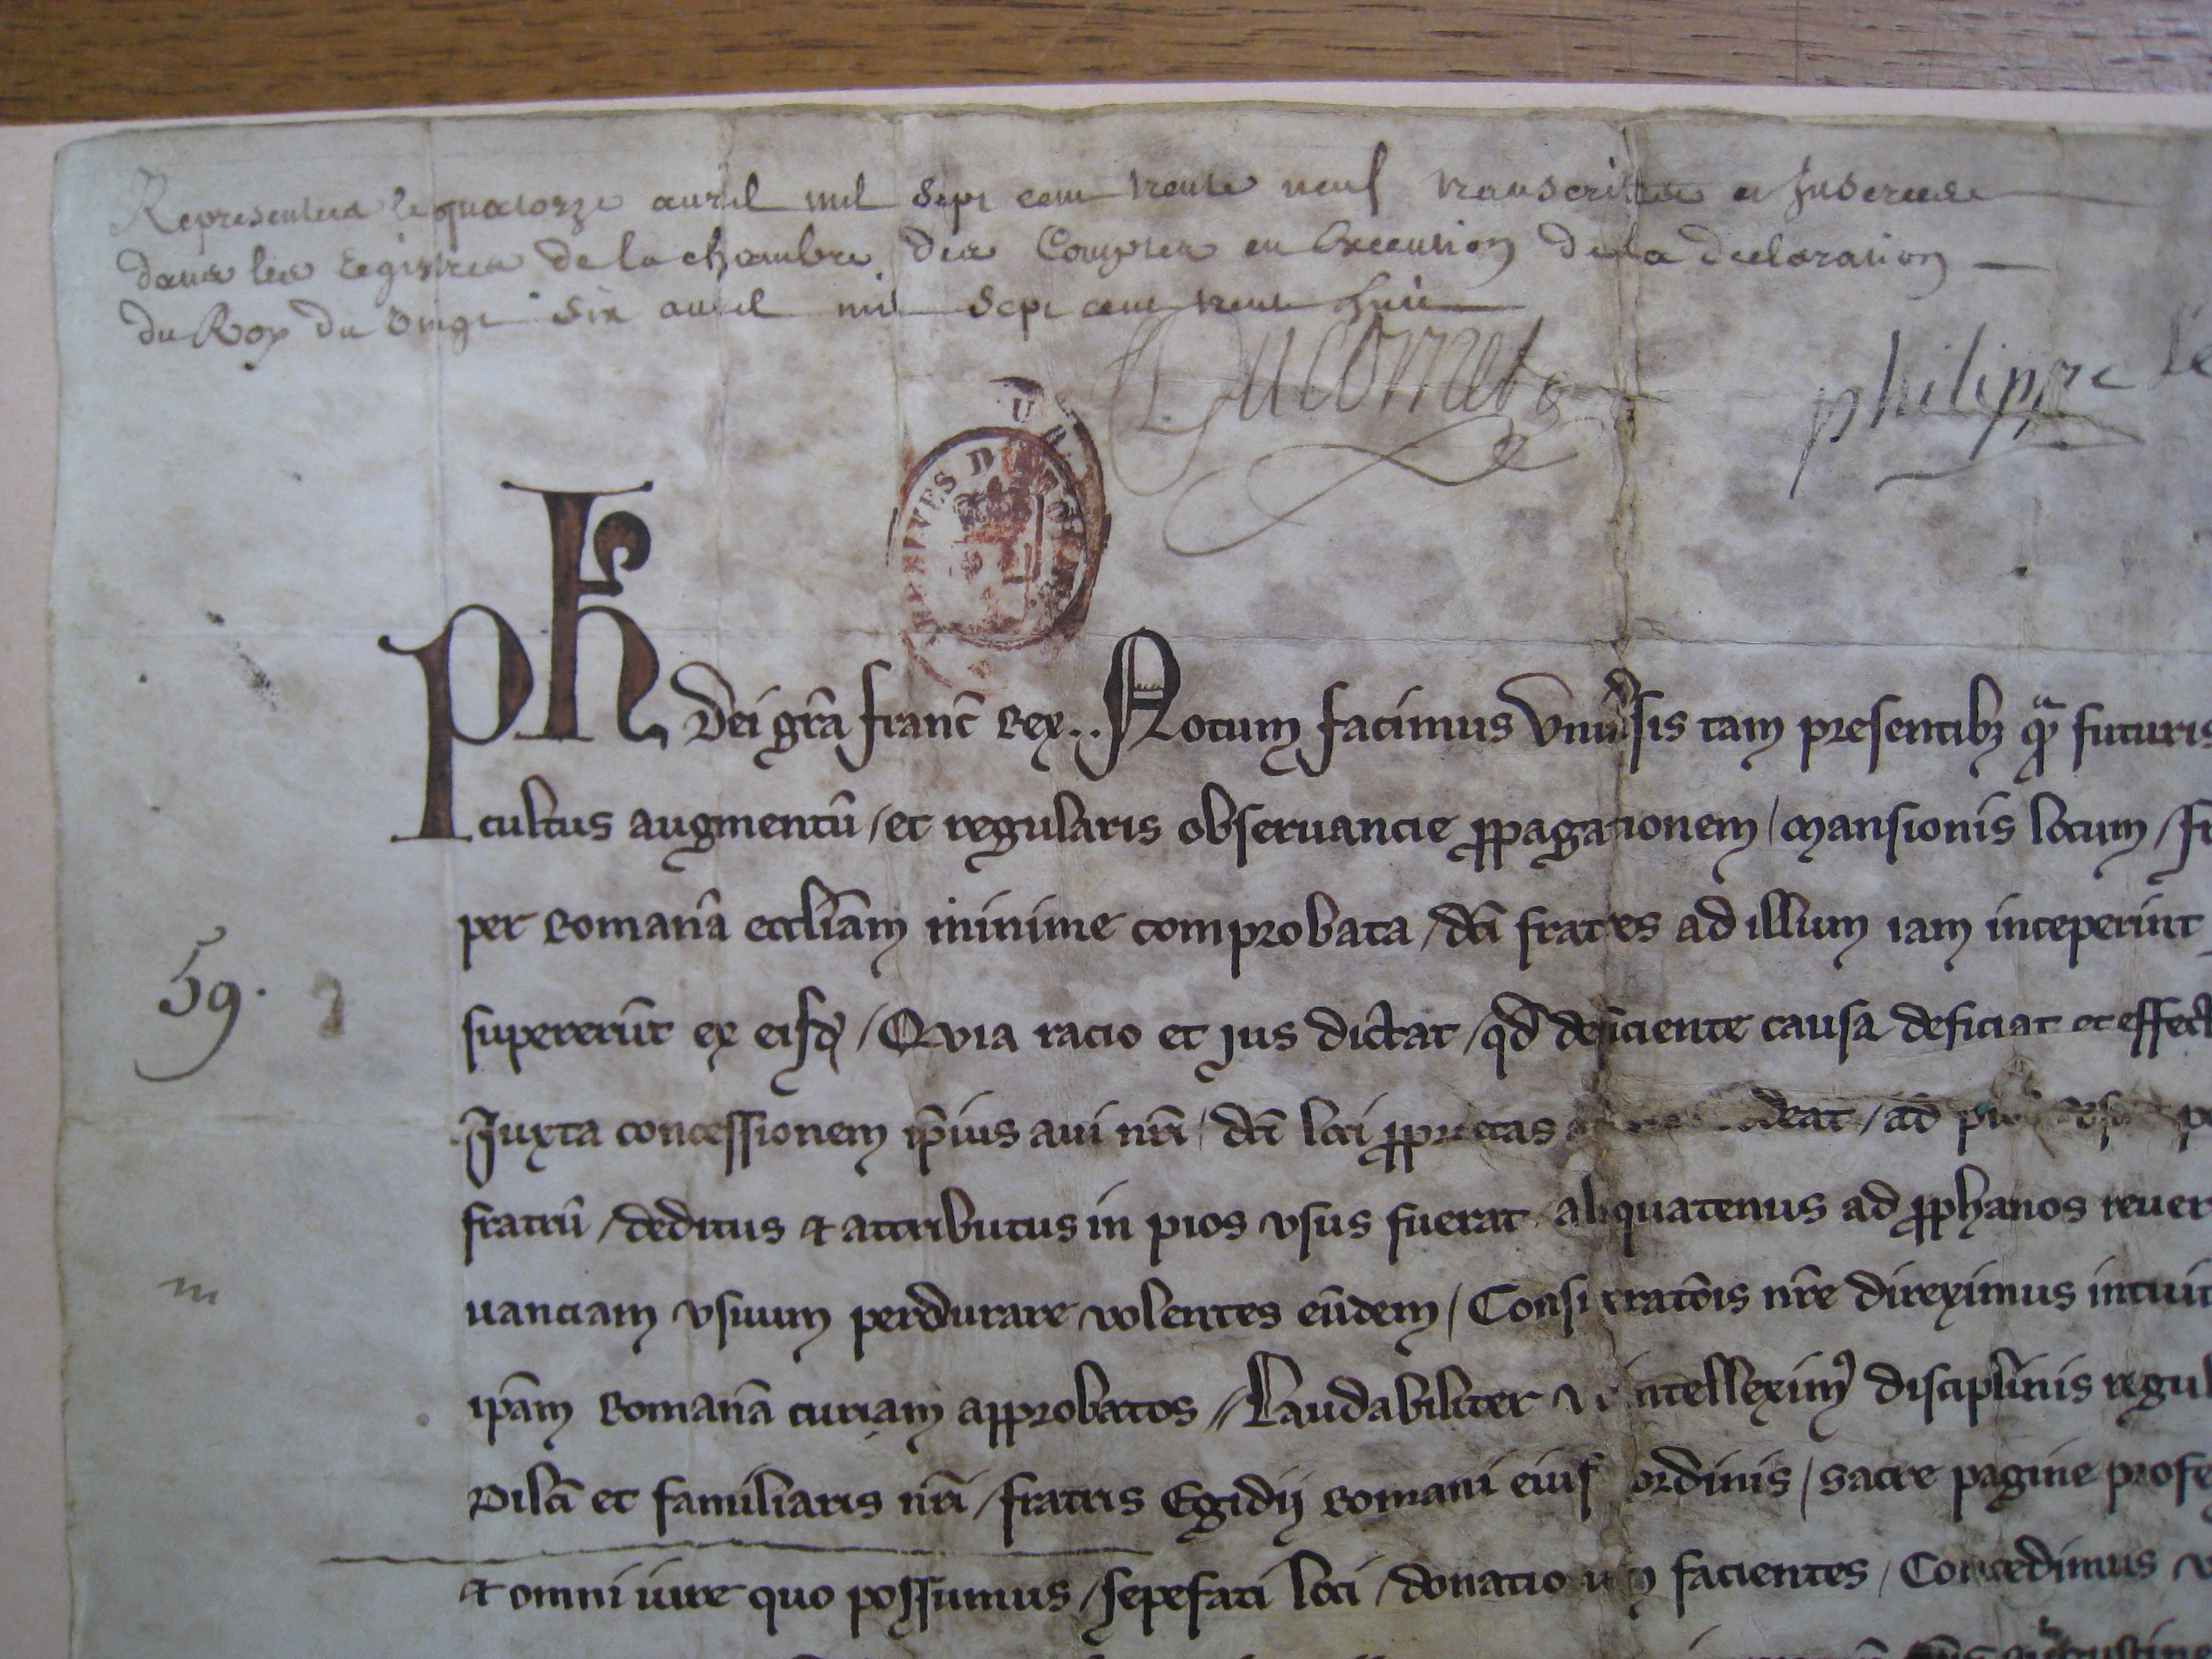 Representées le quatorze auril mil Sept cent trente neuf transcrites et Inserées
dans les registres de la chambre des Comptes en Execution de la declaration
du Roy du Vingt Six auril mil Sept cent trente huit
Ducornet
philippe le
ARCHIVES D
Ph Dei grã franc̃ Rex.. Notum facimus Vniũsis tam presentibꝫ qᷓ futuris
cultus augmentũ / et regularis obseruancie ꝓpagationem / mansionis locum /
per Romanã eccl̃iam minime comprobata / dc̃i fratres ad illum iam inceperũt
supererũt ex eisdꝫ / Quia racio et jus dictat / qd̃ deficiente causa deficiat et effect
Juxta concessionem ip̃ius aui nr̃i / dc̃i loci ꝓprietas deat / ad
fratrũ / deditus & attributus in pios vsus fuerat aliquatenus ad ꝓphanos reuer
uanciam vsuum perdurare volentes eũdem / Consideratõis nr̃e direximus intuit
ip̃am Romanã curiam approbatos // Laudabiliter intelleximꝰ disciplinis regul
Dilc̃i et familiaris nr̃i / fratris Egidij Romani eius ordinis / sacre pagine profe
& omni iure quo possumus / sepefati loci / donationem facientes / Concedimus
59.
m